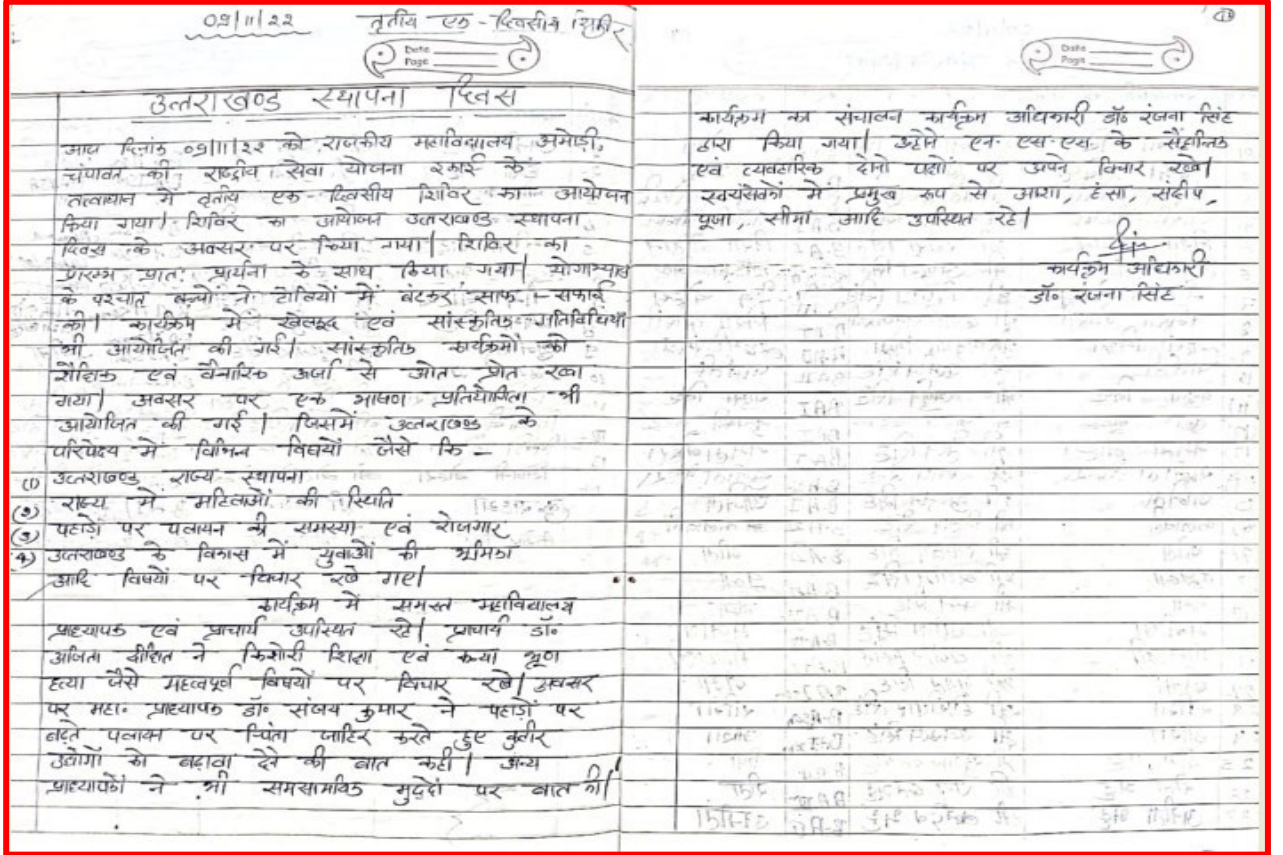 09/11/22 तृतीय एक-दिवसीय शिविर
Date
Page
उत्तराखण्ड स्थापना दिवस
आज दिनांक 09/11/22 को राजकीय महाविद्यालय अमोड़ी,
चंपावत की राष्ट्रीय सेवा योजना इकाई के
तत्वाधान में तृतीय एक दिवसीय शिविर का आयोजन
किया गया। शिविर का आयोजन उत्तराखण्ड स्थापना
दिवस के अवसर पर किया गया। शिविर का
प्रारम्भ प्रातः प्रार्थना के साथ किया गया। योगाभ्यास
के पश्चात बच्चों ने टोलियों में बंटकर साफ-सफाई
की। कार्यक्रम में खेलकूद एवं सांस्कृतिक गतिविधियाँ
भी आयोजित की गई। सांस्कृतिक कार्यक्रमों को
शैक्षिक एवं वैचारिक ऊर्जा से ओत प्रोत रखा
गया। अवसर पर एक भाषण प्रतियोगिता भी
आयोजित की गई। जिसमें उत्तराखण्ड के
परिपेक्ष्य में विभिन्न विषयों जैसे कि -
(1) उत्तराखण्ड राज्य स्थापना
(2) राज्य में महिलाओं की स्थिति
(3) पहाड़ों पर पलायन की समस्या एवं रोजगार
(4) उत्तराखण्ड के विकास में युवाओं की भूमिका
आदि विषयों पर विचार रखे गए।
कार्यक्रम में समस्त महाविद्यालय
प्राध्यापक एवं प्राचार्य उपस्थित रहे। प्राचार्य डॉ॰
अजिता दीक्षित ने किशोरी शिक्षा एवं कन्या भ्रूण
हत्या जैसे महत्वपूर्ण विषयों पर विचार रखे। अवसर
पर महा॰ प्राध्यापक डॉ॰ संजय कुमार ने पहाड़ों पर
बढ़ते पलायन पर चिंता जाहिर करते हुए कुटीर
उद्योगों को बढ़ावा देने की बात कही। अन्य
प्राध्यापकों ने भी समसामयिक मुद्दों पर बात की।
Date
Page
कार्यक्रम का संचालन कार्यक्रम अधिकारी डॉ॰ रंजना सिंह
द्वारा किया गया। उन्होंने एन-एस-एस- के सैद्धान्तिक
एवं व्यवहारिक दोनों पक्षों पर अपने विचार रखे।
स्वयंसेवकों में प्रमुख रूप से आशा, हंसा, संदीप,
पूजा, सीमा आदि उपस्थित रहे।
कार्यक्रम अधिकारी
डॉ॰ रंजना सिंह